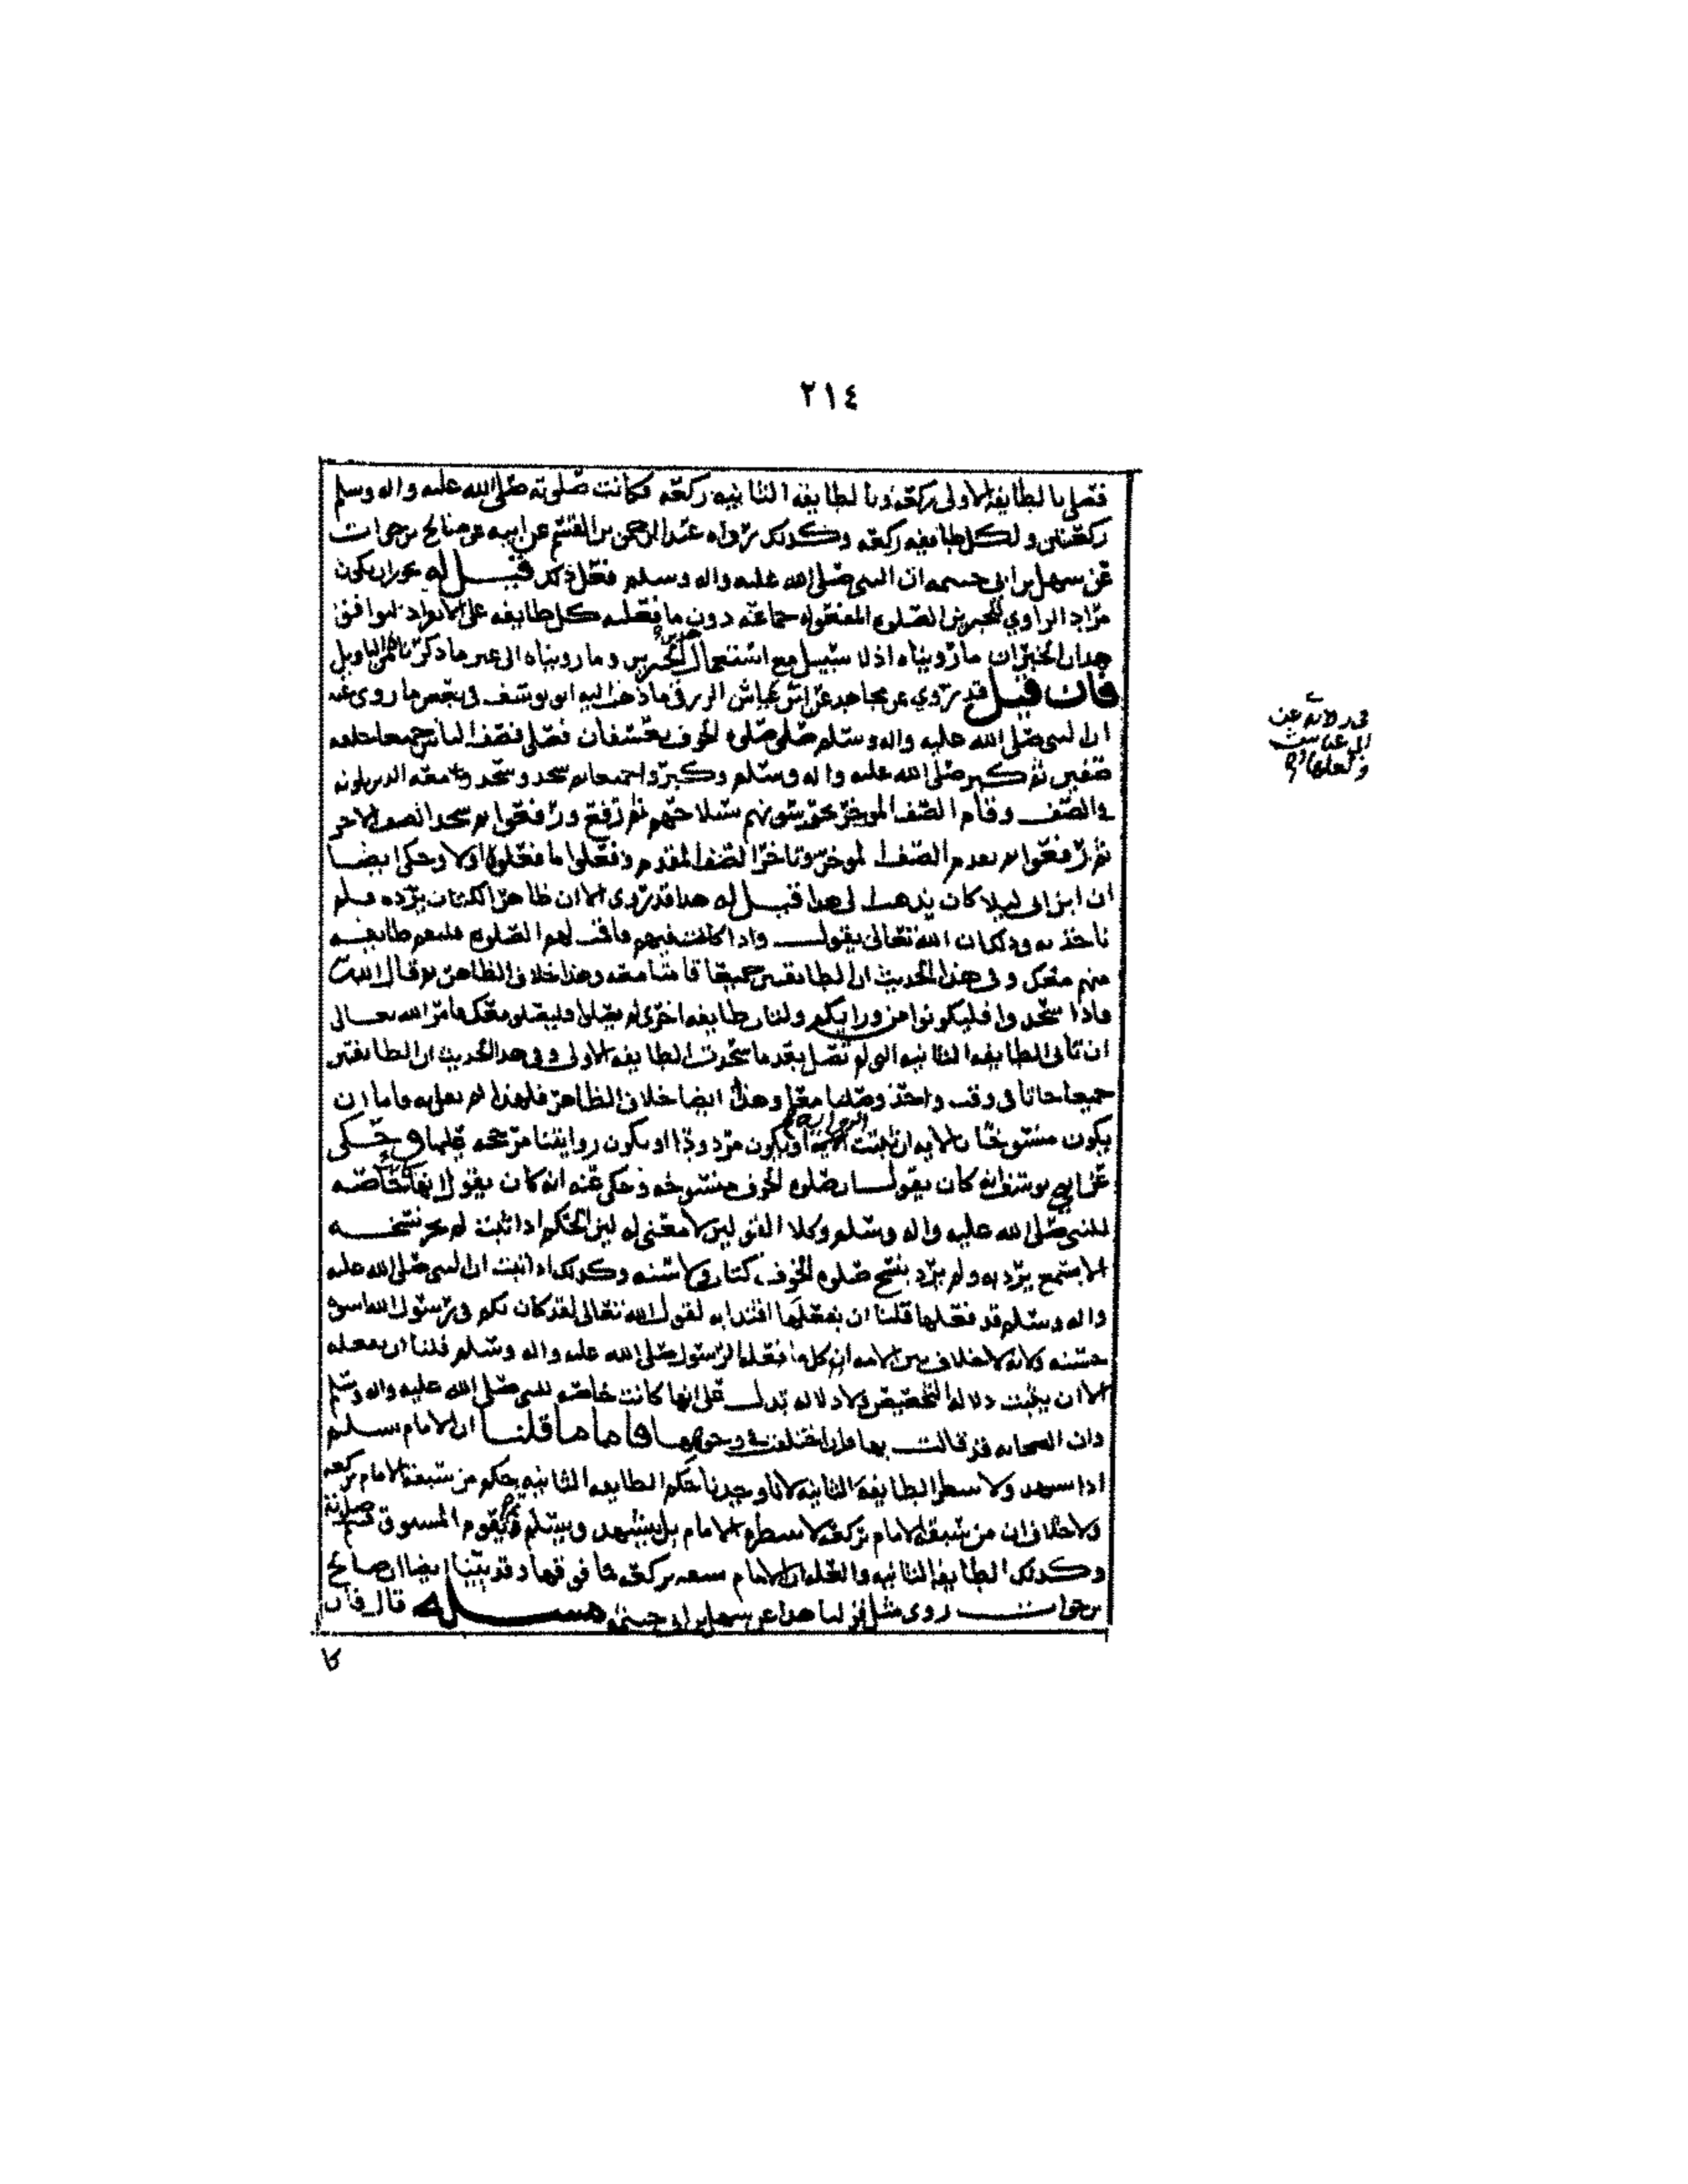 ٢١٤
فصلى بالطايفة الاولى ركعة وبالطايفه الثانيه ركعه فكانت صلوته صلى الله عليه واله وسلم
ركعتين ولكل طايفه ركعه وكذلك رواه عبد الرحمن بن القسم عن ابيه عن صالح بن خوات
عن سهل بن ابي حسمه ان النبي صلى الله عليه واله وسلم فعل ذلك قيل له يجوز ان يكون
مراد الراوي للخبرين الصلوه المفعوله جماعه دون ما فعلته كل طايفه على الانفراد ليوافق
هذان الخبران ما رويناه اذ لا سبيل مع استعمال الخبرين وما رويناه الى غير ما ذكرنا من التاويل
فان قيل قد روي عن مجاهد عن ابي عياش الزرقي ما ذهب اليه ابو يوسف في بعض ما روي عنه
ان النبي صلى الله عليه واله وسلم صلى صلوه الخوف بعسفان فصلى فصف الناس جميعا خلفه
صفين ثم كبر صلى الله عليه واله وسلم وكبروا جميعا ثم سجد وسجد معه الذين يلونه
في الصف وقام الصف الموخر يحرسونهم بسلاحهم ثم رفع ورفعوا ثم سجد الصف الاخر
ثم رفعوا ثم تقدم الصف الموخر وتاخر الصف المقدم وفعلوا ما فعلوه اولا وحكي ايضا
ان ابن ابي ليلا كان يذهب الى هذا قيل له هذا قد روي الا ان ظاهر الكتاب يرده فلم
ناخذ به وذلك ان الله تعالى يقول واذا كنت فيهم فاقمت لهم الصلوه فلتقم طايفه
منهم معك وفي هذا الحديث ان الطايفتين جميعا قامتا معه وهذا خلاف الظاهر ثم قال الله
فاذا سجدوا فليكونوا من ورايكم ولتات طايفه اخرى لم يصلوا فليصلوا معك فامر الله تعالى
ان تاتي الطايفه الثانيه التي لم تصل بعد ما سجدت الطايفه الاولى وفي هذا الحديث ان الطايفتين
جميعا جاتا في وقت واحد وصلتا معه وهذا ايضا خلاف الظاهر فلهذا لم نعل به فاما ان
يكون منسوخا بالايه ان ثبت او يكون مردودا او يكون روايتنا مرجحه عليها وحكى
عن ابي يوسف انه كان يقول ان صلوه الخوف منسوخه وحكي عنه انه كان يقول انها خاصه
للنبي صلى الله عليه واله وسلم وكلا القولين لا معنى له لان الحكم اذا ثبت لم يجز نسخه
الا بسمع يرد به ولم يرد بنسخ صلوه الخوف كتاب ولا سنه وكذلك اذا ثبت ان النبي صلى الله عليه
واله وسلم قد فعلها قلنا ان نفعلها اقتدا به لقول الله تعالى لقد كان لكم في رسول الله اسوه
حسنه ولانه لا خلاف بين الامه ان كل ما فعله الرسول صلى الله عليه واله وسلم فلنا ان نفعله
الا ان يثبت دلاله التخصيص ولا دلاله تدل على انها كانت خاصه للنبي صلى الله عليه واله وسلم
وان الصحابه قد قالت بها وان اختلفت في وجوهها فاما ما قلنا ان الامام يسلم
اذا تشهد ولا ينتظر الطايفه الثانيه لانا وجدنا حكم الطايفه الثانيه حكم من سبقه الامام بركعه
ولا خلاف ان من سبقه الامام بركعه لا ينتظره الامام بل يتشهد ويسلم ثم يقوم المسبوق فيتم صلاته
وكذلك الطايفه الثانيه والعله ان الامام سبقه بركعه فما فوقها وقد بينا ايضا ان صالح
بن خوات روى مثل قولنا هذا عن سهل بن ابي حسمه مسله قال فان
في رواية عن
ابي عياش